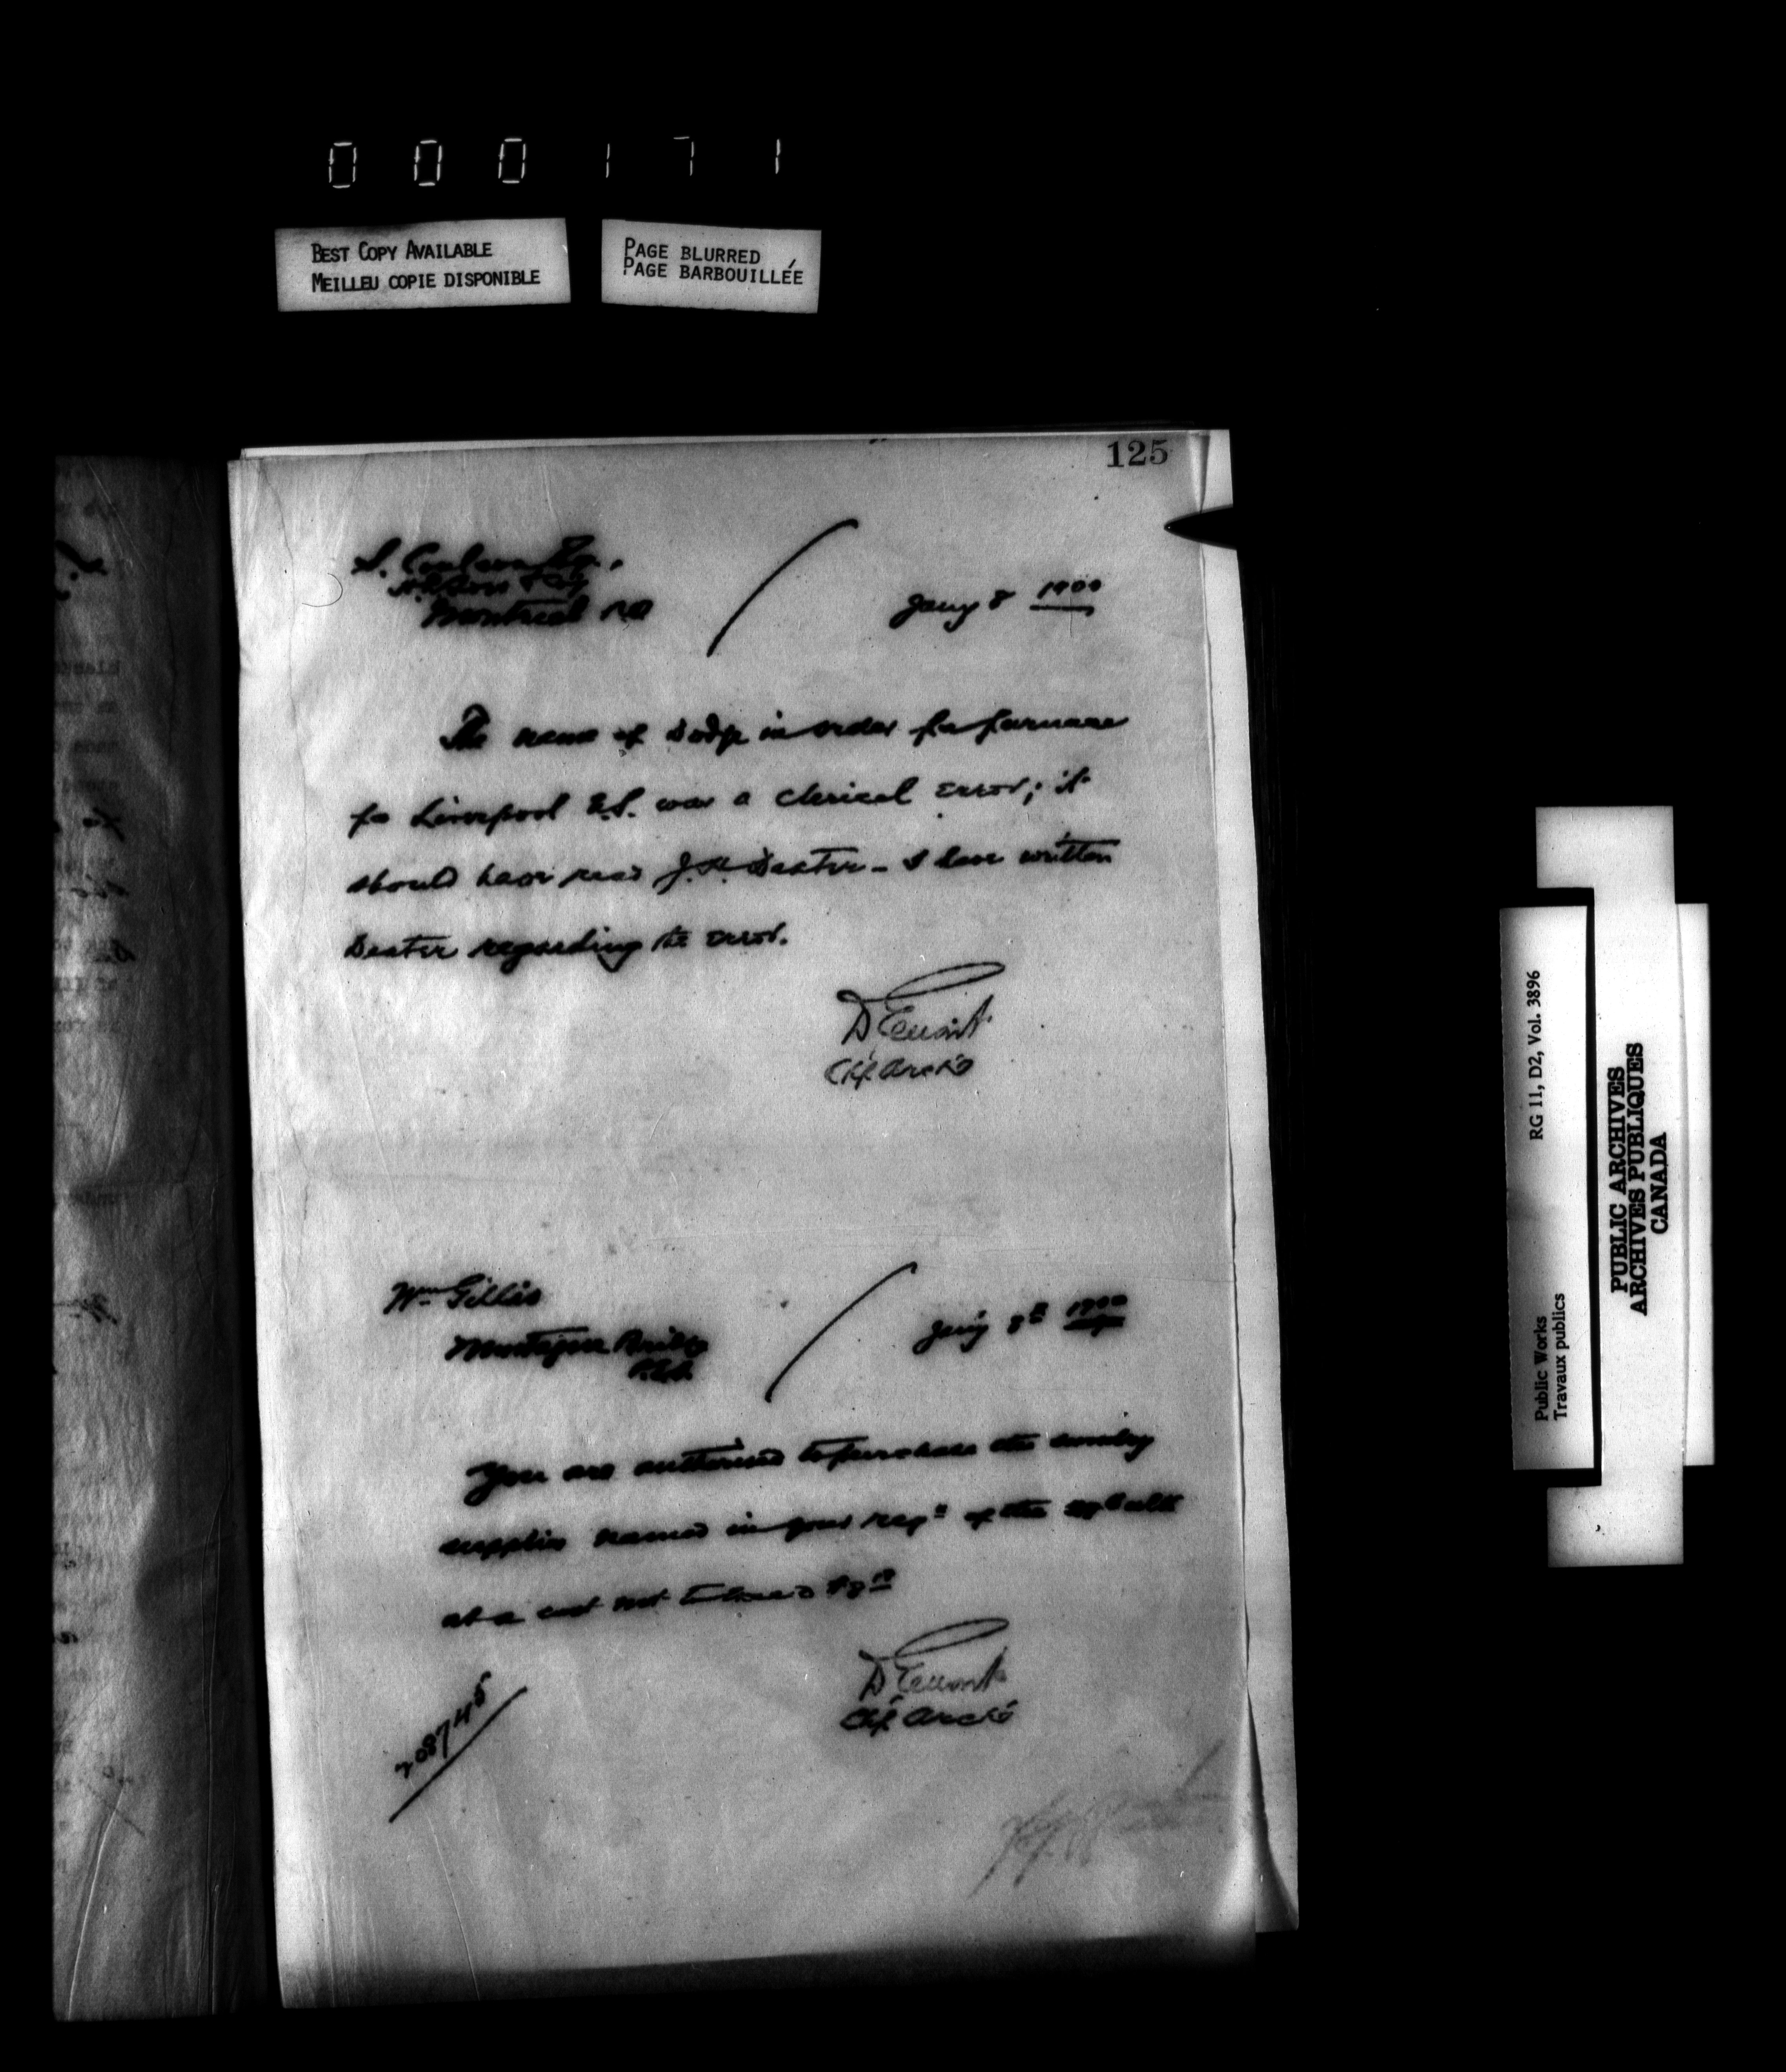 000171
BEST COPY AVAILABLE
MEILLEU COPIE DISPONIBLE
PAGE BLURRED
PAGE BARBOUILLÉE
125
Montreal
Jany 8 1900
The name of Dodge in order for furnace
for Liverpool was a clerical error; it
should have read J. H. Dexter - I have written
Dexter regarding the error.
D Ewart
Chf. Archt
Wm Gillis
Montague Bridge
P.E.I.
Jany 8th 1900
You are authorised to purchase the sundry
supplies named in your reqn of the ult
at a cost not to exceed
D Ewart
Chf. Archt
208745
Public Works
Travaux publics
RG 11, D2, Vol. 3896
PUBLIC ARCHIVES
ARCHIVES PUBLIQUES
CANADA